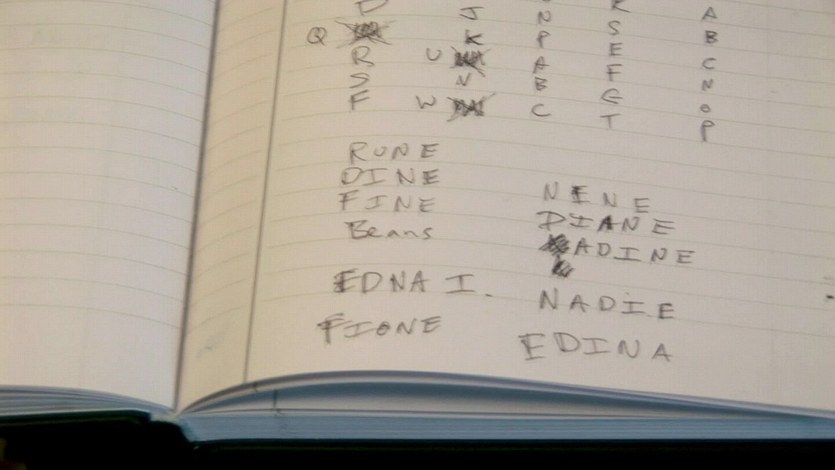 D J N R A
Q K P S B
R U A E C
S V B F N
F W C G O
T P
RUNE
DINE
FINE
Beans
EDNA I.
FIONE
NENE
DIANE
ADINE
NADIE
EDINA